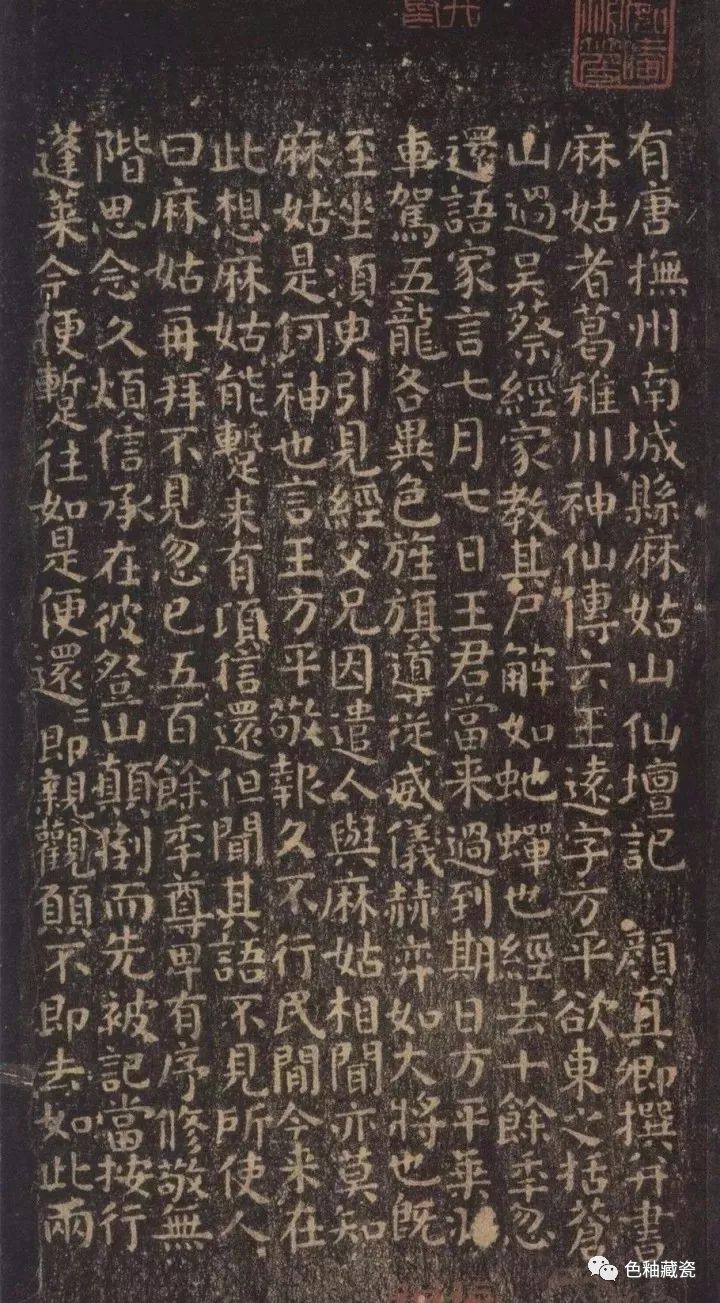 有唐撫州南城縣麻姑山仙壇記 顏真卿撰并書
麻姑者葛稚川神仙傳云王遠字方平欲東之括蒼
山過吳蔡經家教其尸解如虵蟬也經去十餘年忽
還語家言七月七日王君當来過到期日方平乗
車駕五龍各異色旌旗導従威儀赫弈如大將也既
至坐須臾引見經父兄因遣人與麻姑相聞亦莫知
麻姑是何神也言王方平敬報久不行民間今来在
此想麻姑能蹔来有頃信還但聞其語不見所使人
曰麻姑再拜不見忽已五百餘年尊卑有序修敬無
階思念久煩信承在彼登山顛倒而先被記當按行
蓬萊今便蹔往如是便還還即親觀願不即去如此兩
色釉藏瓷